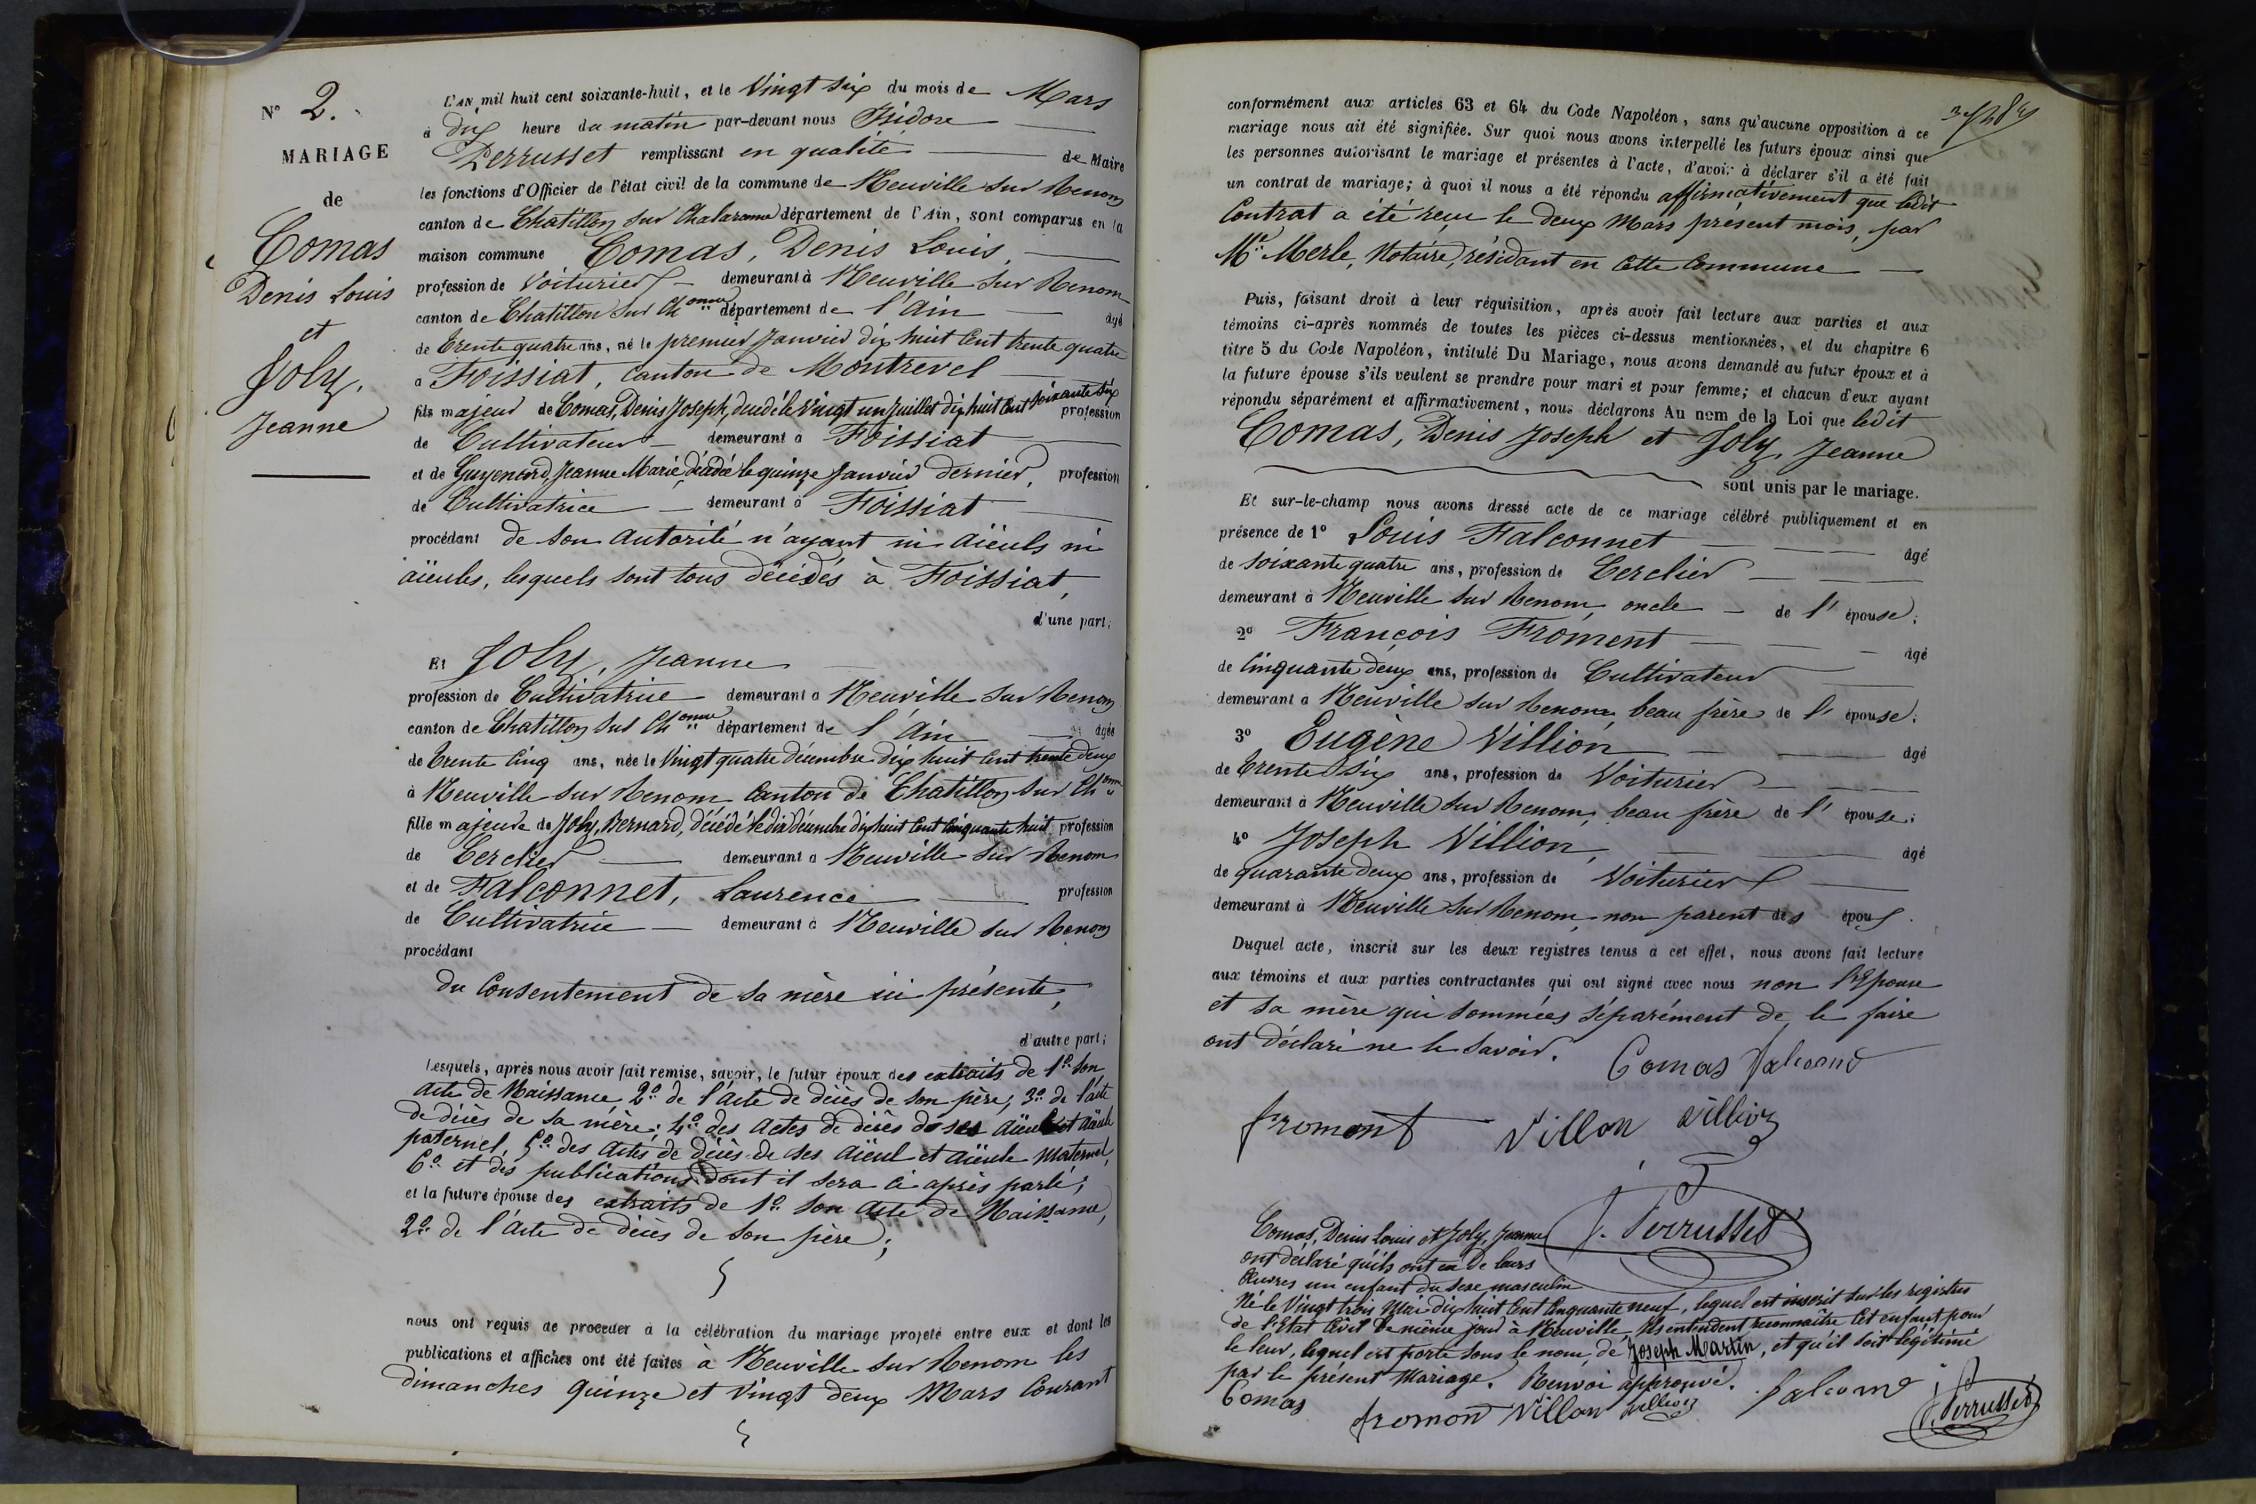 N° 2.
MARIAGE
de
Comas
Denis Louis
et
Joly,
Jeanne
L'AN mil huit cent soixante-huit, et le Vingt six du mois de Mars
à dix heure du matin par-devant nous Isidore
Perrusset remplissant en qualité de Maire
les fonctions d'Officier de l'état civil de la commune de Neuville sur Renom
canton de Chatillon sur Chalaronne département de l'Ain, sont comparus en la
maison commune Comas, Denis Louis,
profession de Voiturier demeurant à Neuville sur Renom
canton de Chatillon sur Ch.onne département de l'Ain âgé
de trente quatre ans, né le premier Janvier dix huit cent trente quatre
à Foissiat, canton de Montrevel
fils majeur de Comas, Denis Joseph, décédé le vingt un Juillet dix huit cent soixante six profession
de Cultivateur demeurant à Foissiat
et de Guyenard, Jeanne Marie, décédée le quinze Janvier dernier, profession
de Cultivatrice demeurant à Foissiat
procédant de son autorité n'ayant ni aïeuls ni
aïeules, lesquels sont tous décédés à Foissiat,
d'une part;
Et Joly, Jeanne
profession de Cultivatrice demeurant à Neuville sur Renom
canton de Chatillon sur Ch.onne département de l'Ain âgée
de trente cinq ans, née le Vingt quatre décembre dix huit cent trente deux
à Neuville sur Renom canton de Chatillon sur Ch.onne
fille majeure de Joly, Bernard, décédé le dix décembre dix huit cent cinquante huit profession
de Cerclier demeurant à Neuville sur Renom
et de Falconnet, Laurence profession
de Cultivatrice demeurant à Neuville sur Renom
procédant
du consentement de sa mère ici présente,
d'autre part;
Lesquels, après nous avoir fait remise, savoir, le futur époux des extraits de 1° son
acte de Naissance 2° de l'acte de décès de son père; 3° de l'acte
de décès de sa mère; 4° des actes de décès de ses aïeul et aïeule
paternel, 5° des actes de décès de ses aïeul et aïeule maternel,
6° et des publications dont il sera ci après parlé;
et la future épouse des extraits de 1° son acte de Naissance,
2° de l'acte de décès de son père;
nous ont requis de procéder à la célébration du mariage projeté entre eux et dont les
publications et affiches ont été faites à Neuville sur Renom les
dimanches quinze et vingt deux Mars Courant
conformément aux articles 63 et 64 du Code Napoléon, sans qu'aucune opposition à ce
mariage nous ait été signifiée. Sur quoi nous avons interpellé les futurs époux ainsi que
les personnes autorisant le mariage et présentes à l'acte, d'avoir à déclarer s'il a été fait
un contrat de mariage; à quoi il nous a été répondu affirmativement que ledit
Contrat a été reçu le deux Mars présent mois, par
Me Merle, Notaire, résidant en cette Commune
Puis, faisant droit à leur réquisition, après avoir fait lecture aux parties et aux
témoins ci-après nommés de toutes les pièces ci-dessus mentionnées, et du chapitre 6
titre 5 du Code Napoléon, intitulé Du Mariage, nous avons demandé au futur époux et à
la future épouse s'ils veulent se prendre pour mari et pour femme; et chacun d'eux ayant
répondu séparément et affirmativement, nous déclarons Au nom de la Loi que ledit
Comas, Denis Joseph et Joly, Jeanne
sont unis par le mariage.
Et sur-le-champ nous avons dressé acte de ce mariage célébré publiquement et en
présence de 1° Louis Falconnet âgé
de soixante quatre ans, profession de Cerclier
demeurant à Neuville sur Renom, oncle de l'épouse;
2° François Froment âgé
de cinquante deux ans, profession de Cultivateur
demeurant à Neuville sur Renom, beau frère de l'épouse;
3° Eugène Villion âgé
de trente six ans, profession de Voiturier
demeurant à Neuville sur Renom, beau frère de l'épouse;
4° Joseph Villion, âgé
de quarante deux ans, profession de Voiturier
demeurant à Neuville sur Renom, non parent des époux.
Duquel acte, inscrit sur les deux registres tenus à cet effet, nous avons fait lecture
aux témoins et aux parties contractantes qui ont signé avec nous non l'Epouse
et sa mère qui sommées séparément de le faire
ont déclaré ne le savoir.
Comas Falconne
fromont Villon Villion
J. Perrusset
Comas, Denis Louis et Joly, Jeanne
ont déclaré qu'ils ont eu de leurs
Œuvres un enfant du sexe masculin
Né le Vingt trois Mai dix huit cent cinquante neuf, lequel est inscrit sur les registres
de l'Etat Civil le même jour à Neuville. Ils entendent reconnaître cet enfant pour
le leur, lequel est porté sous le nom de Joseph Martin, et qu'il soit légitimé
par le présent Mariage. Renvoi approuvé.
Comas fromont Villon Villion falconne J. Perrusset